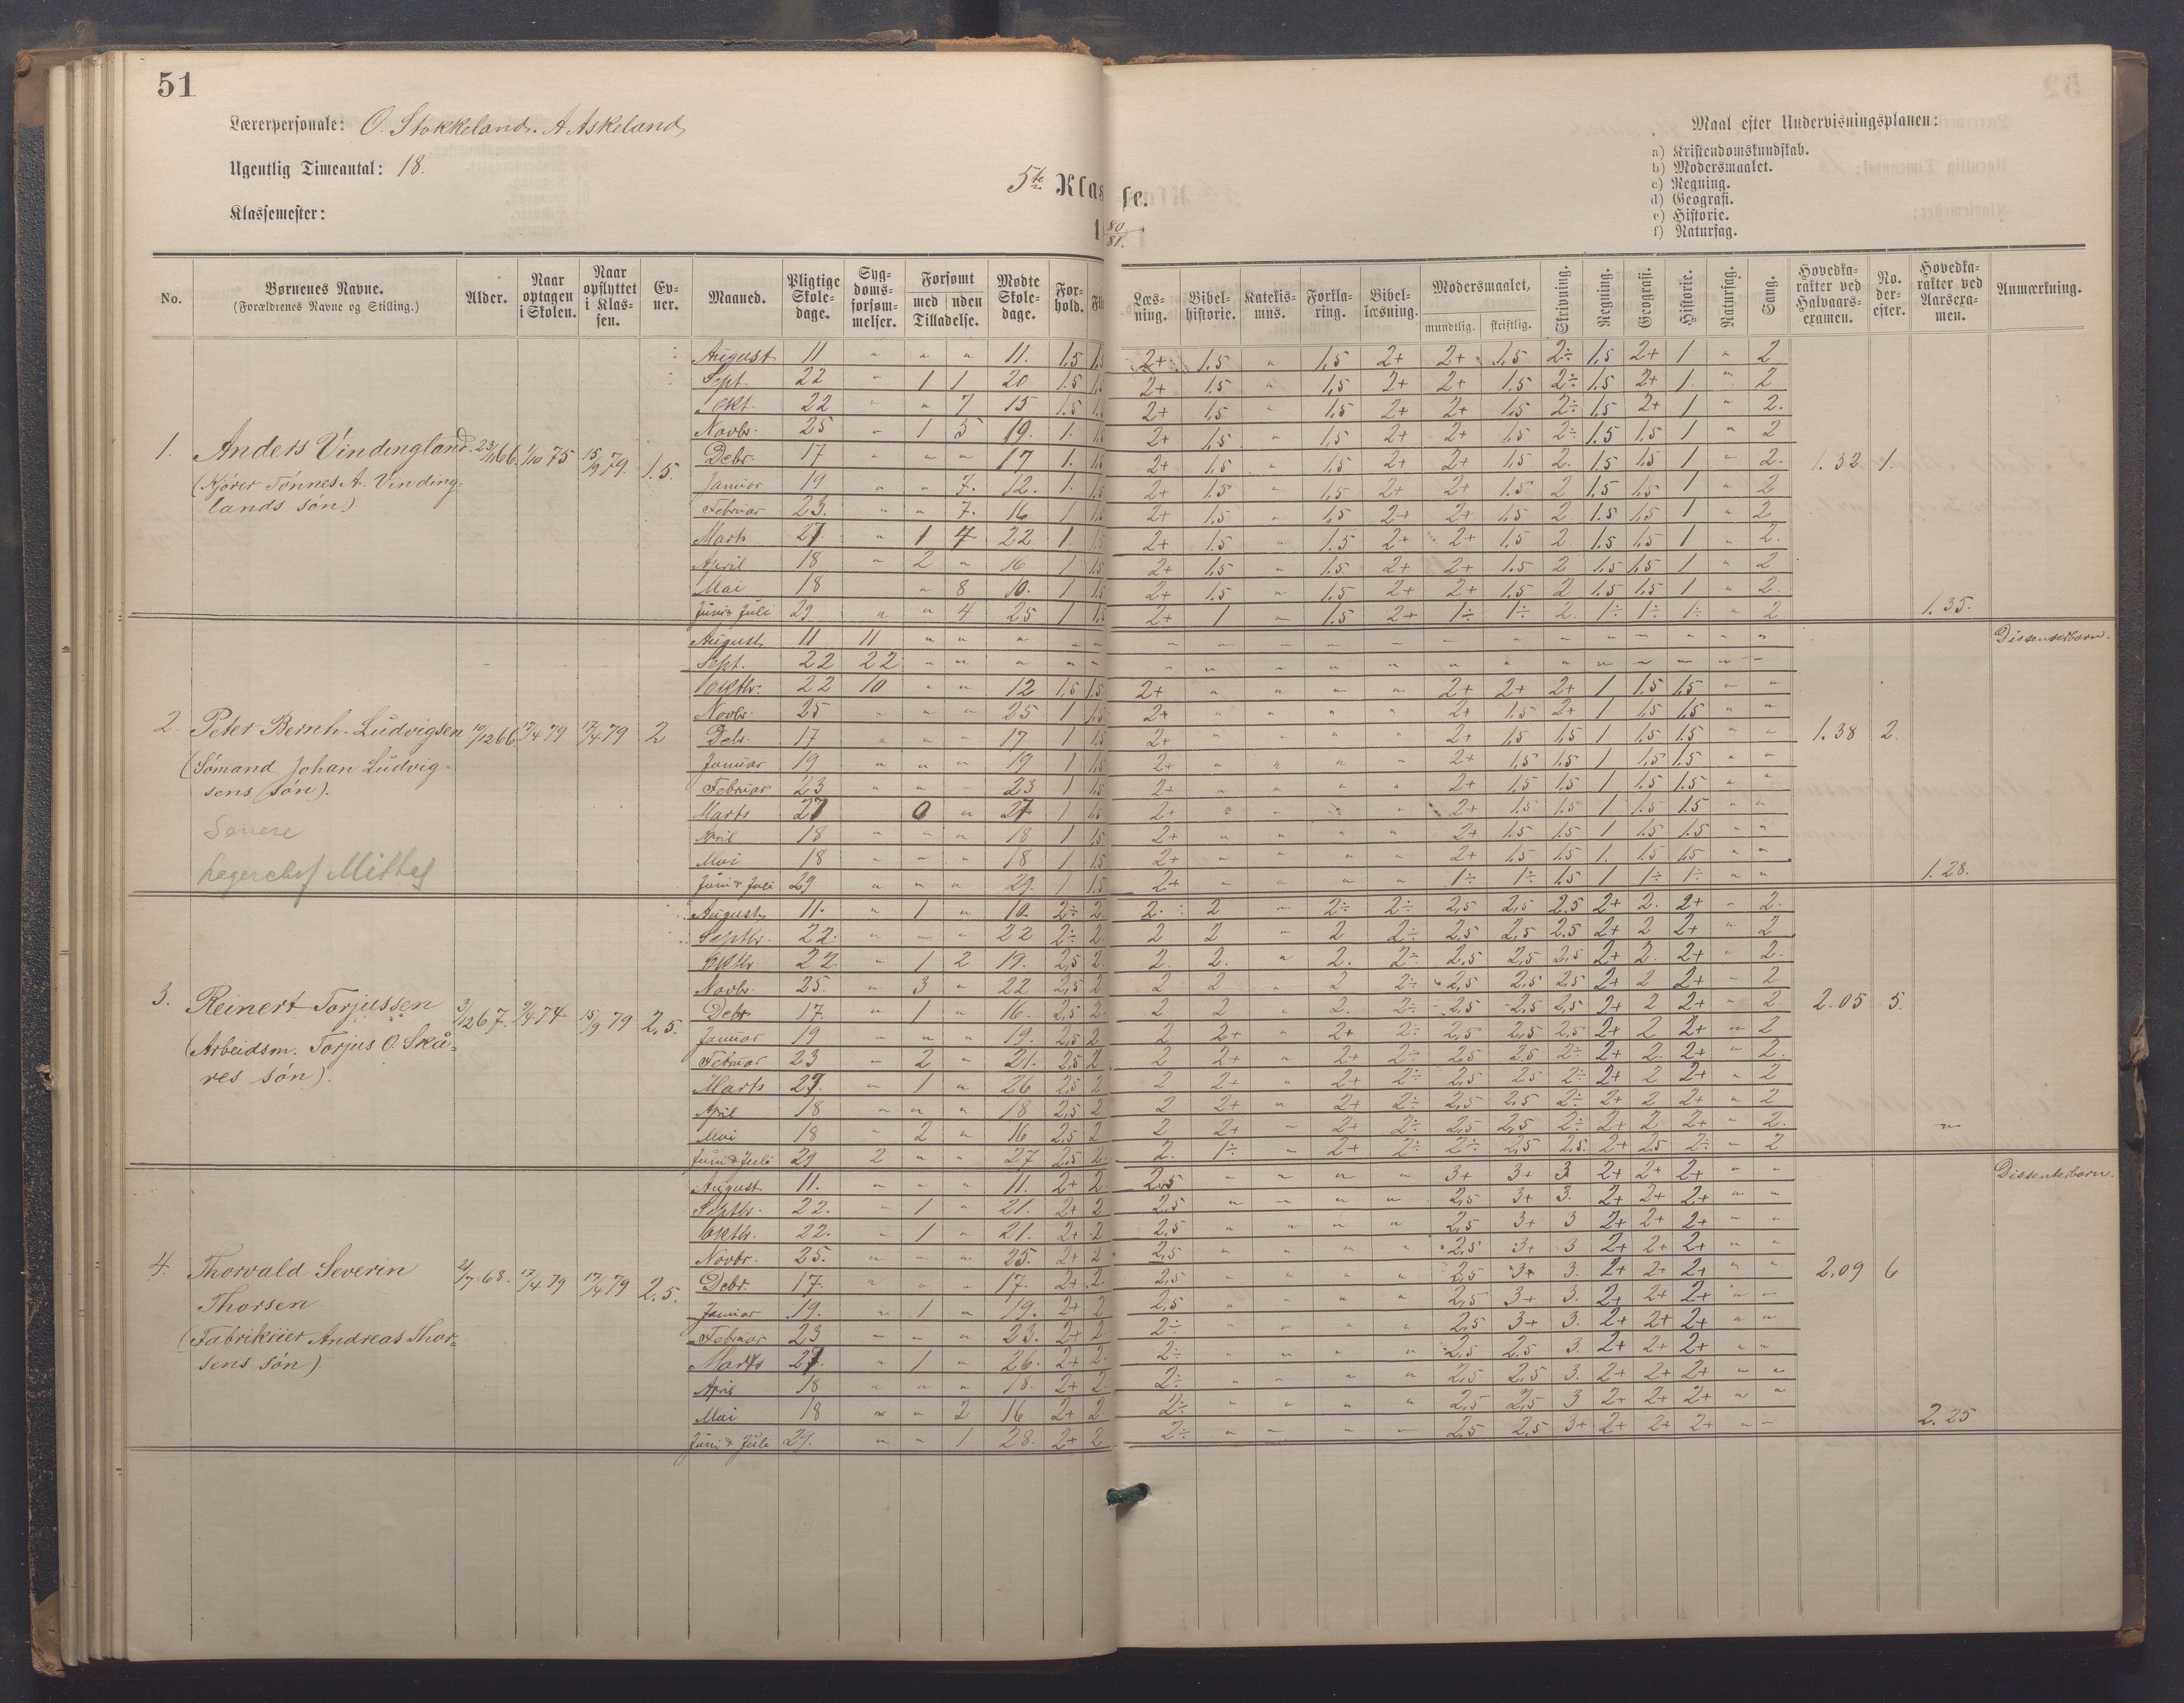 51
Lærerpersonale: O. Stokkeland. A Askeland
Ugentlig Timeantal: 18.
Klassemester:
5te Klasse.
1 80/81.
Maal efter Undervisningsplanen:
a) Kristendomskundskab.
b) Modersmaalet.
c) Regning.
d) Geografi.
e) Historie.
f) Naturfag.
No. | Børnenes Navne. (Forældrenes Navne og Stilling.) | Alder. | Naar optagen i Skolen. | Naar opflyttet i Klassen. | Evner. | Maaned. | Pligtige Skoledage. | Sygdomsforsømmelser. | Forsømt med Tilladelse. | uden | Mødte Skoledage. | Forhold. | Fli | Læsning. | Bibelhistorie. | Katekismus. | Forklaring. | Bibellæsning. | Modersmaalet, mundtlig. | skriftlig. | Skrivning. | Regning. | Geografi. | Historie. | Naturfag. | Sang. | Hovedkarakter ved Halvaarsexamen. | No. derefter. | Hovedkarakter ved Aarsexamen. | Anmærkning.
1. Anders Vindingland. 23/1 66. 1/10 75 15/9 79. 1.5. 1.32 1. 1.35.
(Kjører Tønnes A. Vinding-
lands søn)
August 11 " " " 11. 1,5 1,5 2+ 1,5 " 1,5 2+ 2+ 1,5 2÷ 1.5 2+ 1 " 2
Sept. 22 " 1 1 20 1.5 1,5 2+ 1.5 " 1,5 2+ 2+ 1.5 2÷ 1.5 2+ 1. " 2
Okt. 22 " " 7 15 1.5 1,5 2+ 1.5 " 1.5 2+ 2+ 1,5 2÷ 1.5 2+ 1 " 2.
Novbr. 25 " 1 5 19. 1. 1,5 2+ 1.5 " 1,5 2+ 2+ 1.5 2÷ 1.5 1.5 1 " 2
Debr. 17 " " " 17 1. 1,5 2+ 1.5 " 1.5 2+ 2+ 1,5 2. 1.5 1.5 1 " 2.
Januar 19 " " 7. 12. 1. 1,5 2+ 1.5 " 1,5 2+ 2+ 1.5 2 1.5 1,5 1 " 2
Februar 23. " " 7. 16 1 1,5 2+ 1.5 " 1,5 2+ 2+ 1,5 2. 1.5 1,5 1 " 2
Marts 27 " 1 4 22 1. 1,5 2+ 1.5 " 1.5 2+ 2+ 1,5 2 1.5 1.5 1 " 2.
April 18 " 2 " 16 1 1.5 2+ 1,5 " 1.5 2+ 2+ 1.5 2 1.5 1.5 1 " 2
Mai 18 " 8 10. 1 1.5 2+ 1.5 " 1,5 2+ 2+ 1,5 2 1.5 1.5 1 " 2.
Juni & Juli 29 " " 4 25 1 1,5 2+ 1 " 1.5 2+ 1÷ 1÷ 2. 1÷ 1÷ 1÷ " 2
2 Peter Bernh. Ludvigsen 12 66 17/4 79 17/4 79 2 1.38 2. 1.28. Dissenterbarn.
(Sømand Johan Ludvig-
sens søn).
Senere
Lagerchef
August 11 11 " " " " " " " " " " " " " " " " " "
Sept. 22 22 " " " " " " " " " " " " " " " " " "
Oktbr. 22 10 " " 12 1,5 1.5 2+ " " " " 2+ 2+ 2+ 1 1.5 1.5 " "
Novbr. 25 " " " 25 1 1,5 2+ " " " " 2+ 1.5 2+ 1 1.5 1.5 " "
Debr. 17 " " " 17 1 1,5 2+ " " " " 2+ 1.5 1.5 1 1.5 1.5 " "
Januar 19 " " " 19 1 1,5 2+ " " " " 2+ 1.5 1.5 1 1.5 1.5 " "
Februar 23 " " " 23 1 1.5 2+ " " " " 2+ 1.5 1.5 1 1.5 1.5 " "
Marts 27 0 " 27 1 1.5 2+ " " " " 2+ 1.5 1.5 1 1.5 1.5 " "
April 18 " " " 18 1 1,5 2+ " " " " 2+ 1.5 1.5 1 1.5 1.5 " "
Mai 18 " " " 18 1 1.5 2+ " " " " 2+ 1.5 1.5 1. 1.5 1.5 " "
Juni & Juli 29 " " " 29. 1 1.5 2+ " " " " 1÷ 1÷ 1.5 1 1÷ 1÷ " "
3. Reinert Torjussen 3/12 67. 9/4 74 15/9 79 2,5. 2.05 5. "
(Arbeidsm. Torjus O. Skå-
res søn).
August 11. " 1 " 10. 2÷ 2. 2. 2 " 2÷ 2÷ 2,5 2,5 2.5 2+ 2. 2+ " 2.
Septbr. 22. " " " 22 2÷ 2. 2 2 " 2 2÷ 2,5 2,5 2.5 2+ 2 2+ " 2
Oktbr. 22. " 1 2 19. 2,5 2. 2. 2. " 2. 2÷ 2,5 2,5 2,5 2+ 2. 2+ " 2.
Novbr. 25. " 3 " 22 2,5 2 2 2 " 2 2÷ 2,5 2,5 2,5 2+ 2 2+ " 2
Debr 17. " 1 " 16. 2,5 2. 2 2 " 2. 2÷ 2,5 2,5 2,5 2+ 2 2+ " 2
Januar 19 " " " 19. 2,5 2 2 2+ " 2+ 2÷ 2,5 2,5 2,5 2+ 2 2+ " 2
Februar 23 " 2 " 21. 2,5 2 2 2+ " 2+ 2÷ 2,5 2,5 2÷ 2+ 2. 2+ " 2.
Marts 27. " 1 " 26 2,5 2 2 2+ " 2+ 2÷ 2,5 2,5 2÷ 2+ 2 2+ " 2
April 18 " " " 18 2,5 2 2 2+ " 2+ 2÷ 2,5 2,5 2÷ 2+ 2 2+ " 2
Mai 18 " 2 " 16 2,5 2 2 2+ " 2+ 2÷ 2,5 2,5 2÷ 2+ 2 2+ " 2.
Juni & Juli 29 2 " " 27 2,5 2. 2. 1÷ " 2+ 2÷ 2÷ 2,5 2,5. 2+ 2,5 2÷ " 2
4. Thorvald Severin 21/7 68. 17/4 79 17/4 79 2.5. 2.09 6 2.25 Dissenterbarn.
Thorsen.
(Fabrikeier Andreas Thor-
sens søn)
August 11. " " " 11. 2+ 2. 2,5 " " " " 3+ 3+ 3 2+ 2+ 2+ " "
Septbr. 22. " 1 " 21. 2+ 2 2,5 " " " " 2,5 3+ 3. 2+ 2+ 2+ " "
Oktbr. 22. " 1 " 21. 2+ 2 2,5 " " " " 2,5 3+ 3 2+ 2+ 2+ " "
Novbr. 25. " " " 25. 2+ 2 2,5 " " " " 2,5 3+ 3 2+ 2+ 2+ " "
Debr. 17. " " " 17. 2+ 2. 2,5 " " " " 2,5 3+ 3. 2+ 2+ 2+ " "
Januar 19. " 1 " 19. 2+ 2 2,5 " " " " 2,5 3+ 3. 2+ 2+ 2+ " "
Februar 23 " " " 23. 2+ 2 2÷ " " " " 2,5 3+ 3. 2+ 2+ 2+ " "
Marts 27. " 1 " 26. 2+ 2. 2÷ " " " " 2,5 2.5 3. 2+ 2+ 2+ " "
April 18 " " " 18. 2+ 2. 2÷ " " " " 2,5 2,5 3. 2+ 2+ 2+ " "
Mai 18 " " 2 16 2+ 2 2÷ " " " " 2,5 2,5 3 2+ 2+ 2+ " "
Juni & Juli 29. " " 1 28. 2+ 2 2÷ " " " " 2,5 2,5 3+ 2+ 2+ 2+ " "